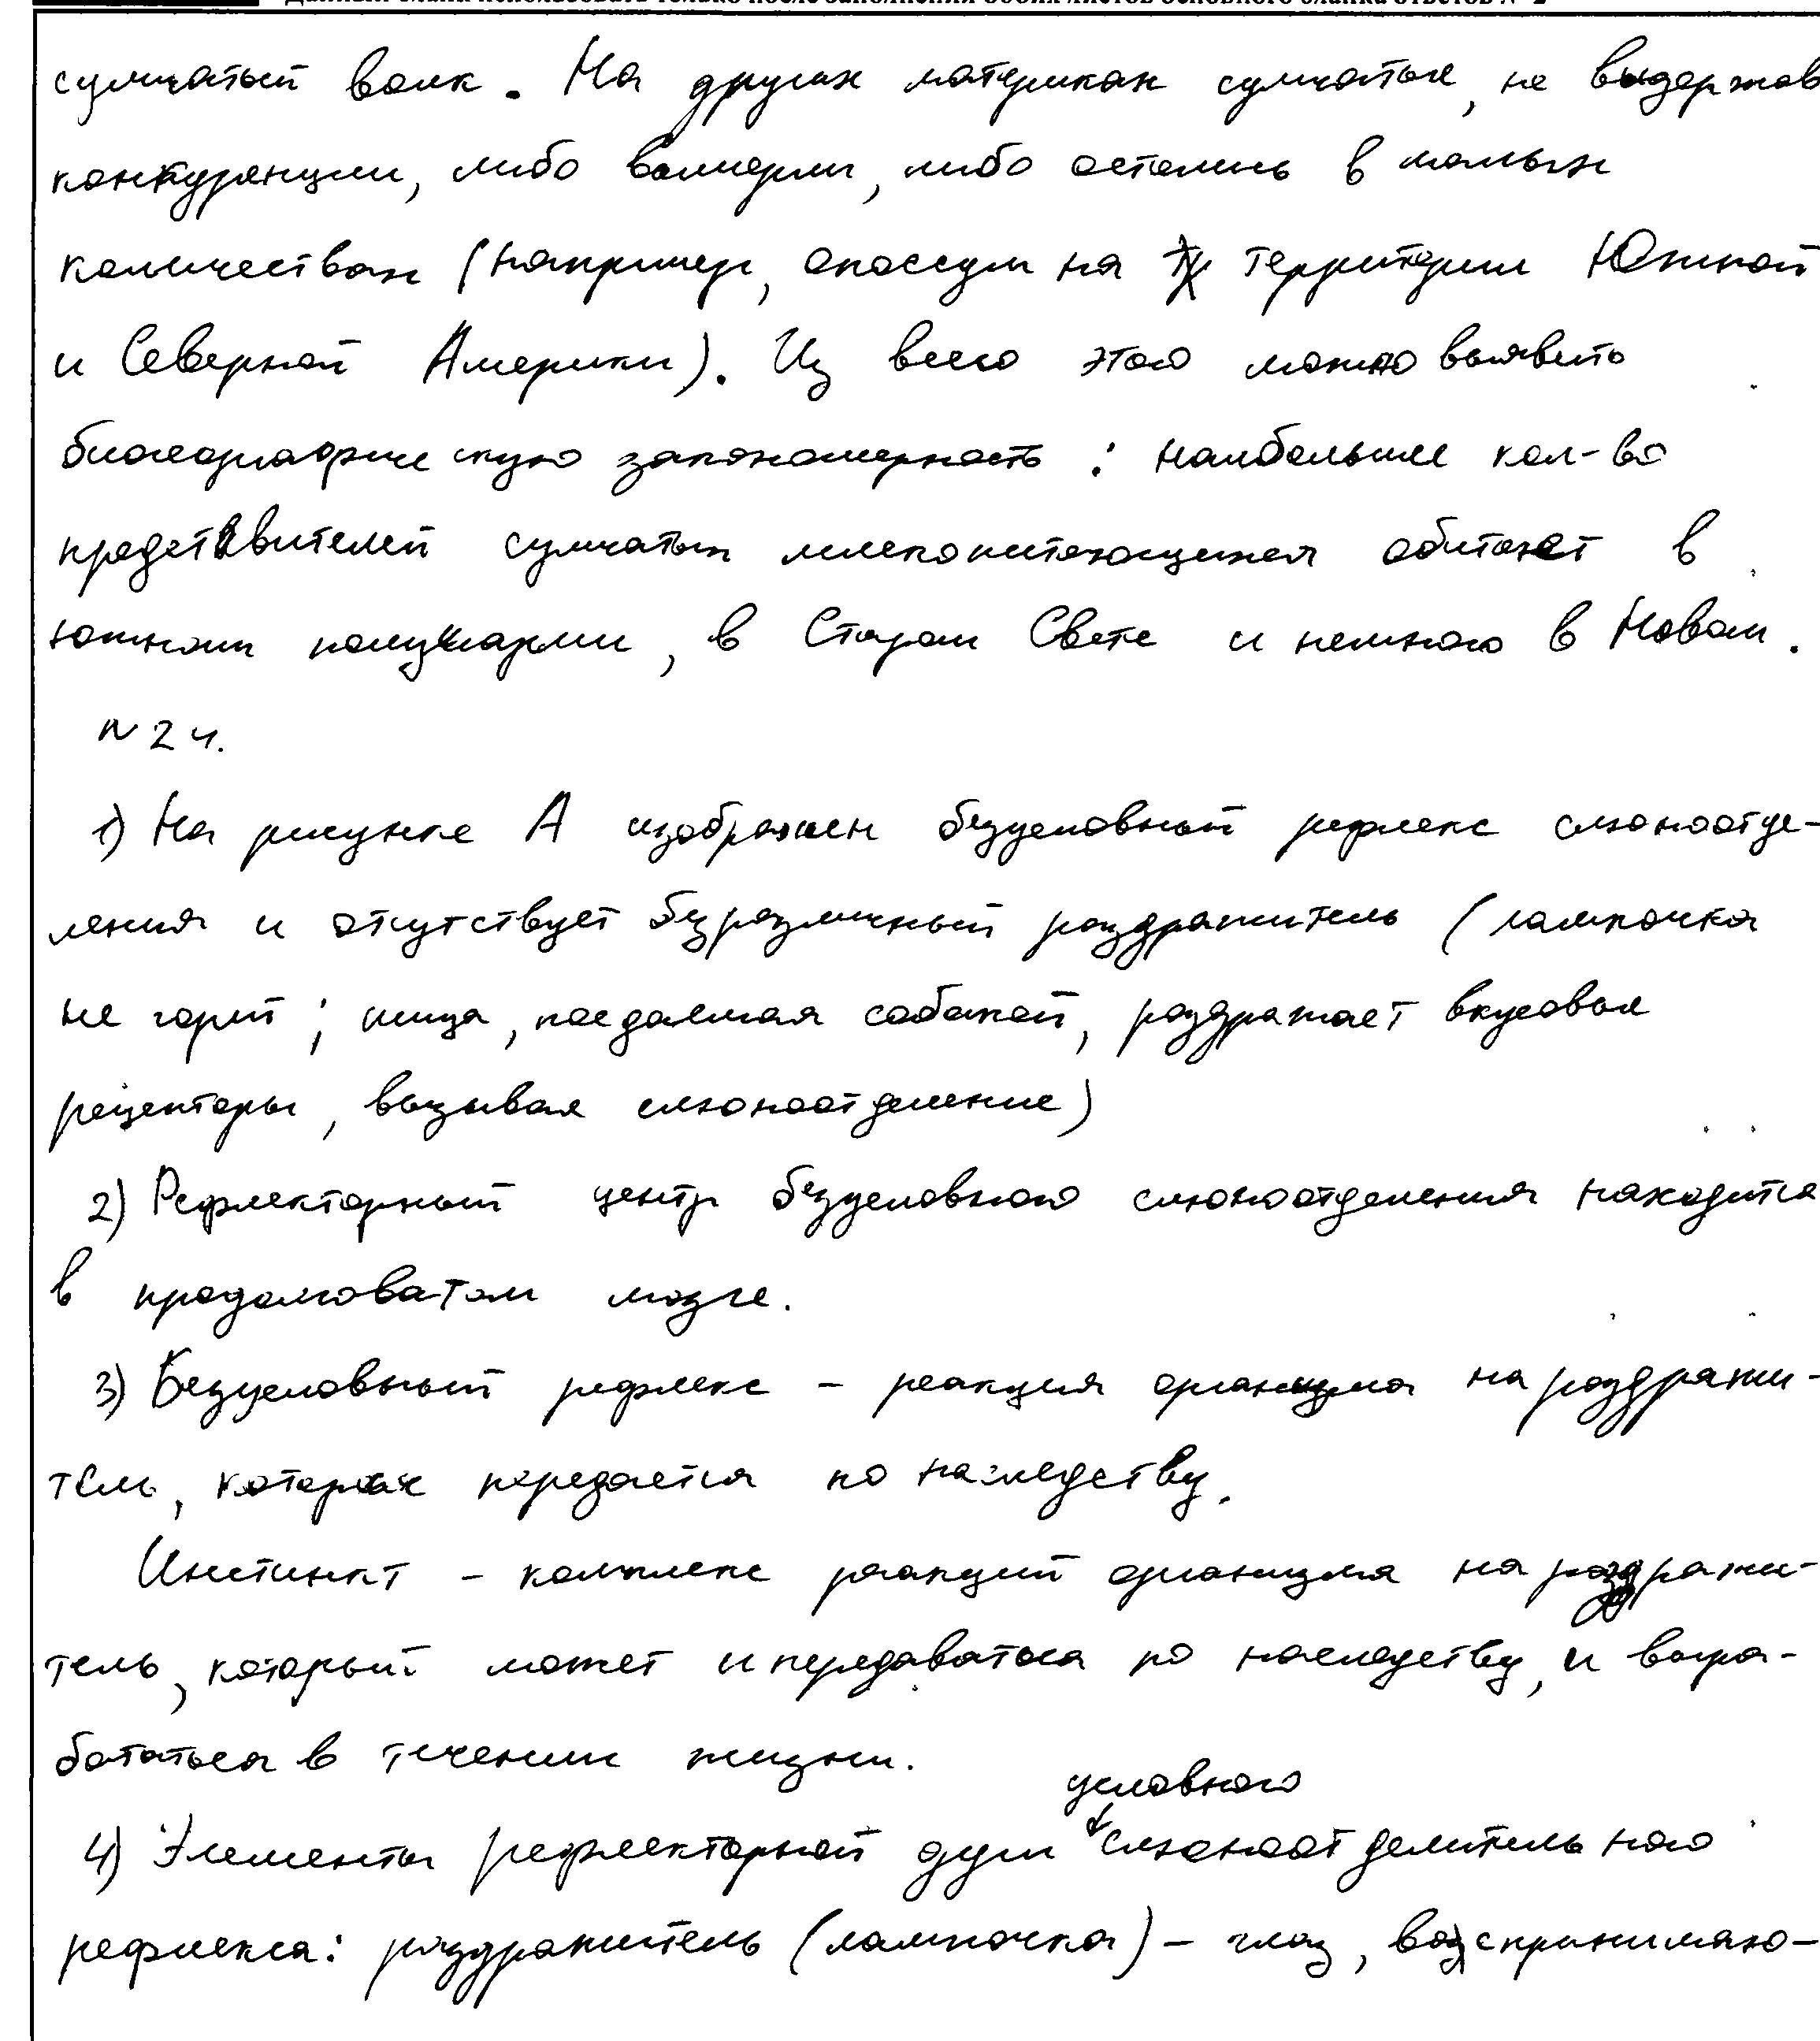 Данный бланк использовать только после заполнения обоих листов основного бланка ответов № 2
сумчатый волк. На других материках сумчатые, не выдержав
конкуренции, либо вымерли, либо остались в малых
количествах (например, опоссум на территории Южной
и Северной Америки). Из всего этого можно выявить
биогеографическую закономерность: наибольшее кол-во
представителей сумчатых млекопитающихся обитает в
южном полушарии, в Старом Свете и немного в Новом.
N 24.
1) На рисунке А изображен безусловный рефлекс слюноотде-
ления и отсутствует безразличный раздражитель (лампочка
не горит; пища, поедаемая собакой, раздражает вкусовые
рецепторы, вызывая слюноотделение)
2) Рефлекторный центр безусловного слюноотделения находится
в продолговатом мозге.
3) Безусловный рефлекс - реакция организма на раздражи-
тель, которая передается по наследству.
Инстинкт - комплекс реакций организма на раздражи-
тель, который может и передаваться по наследству, и выра-
бататься в течении жизни.
условного
4) Элементы рефлекторной дуги слюноотделительного
рефлекса: раздражитель (лампочка) - глаз, воспринимаю-